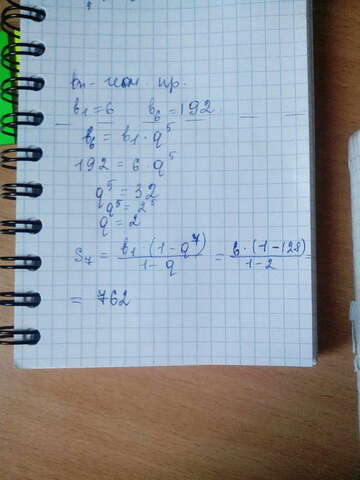 bn - геом. пр.
b₁ = 6 b₆ = 192
b₆ = b₁ · q⁵
192 = 6 · q⁵
q⁵ = 32
q⁵ = 2⁵
q = 2
S₇ = b₁ · (1 - q⁷) / 1 - q = 6 · (1 - 128) / 1 - 2 =
= 762